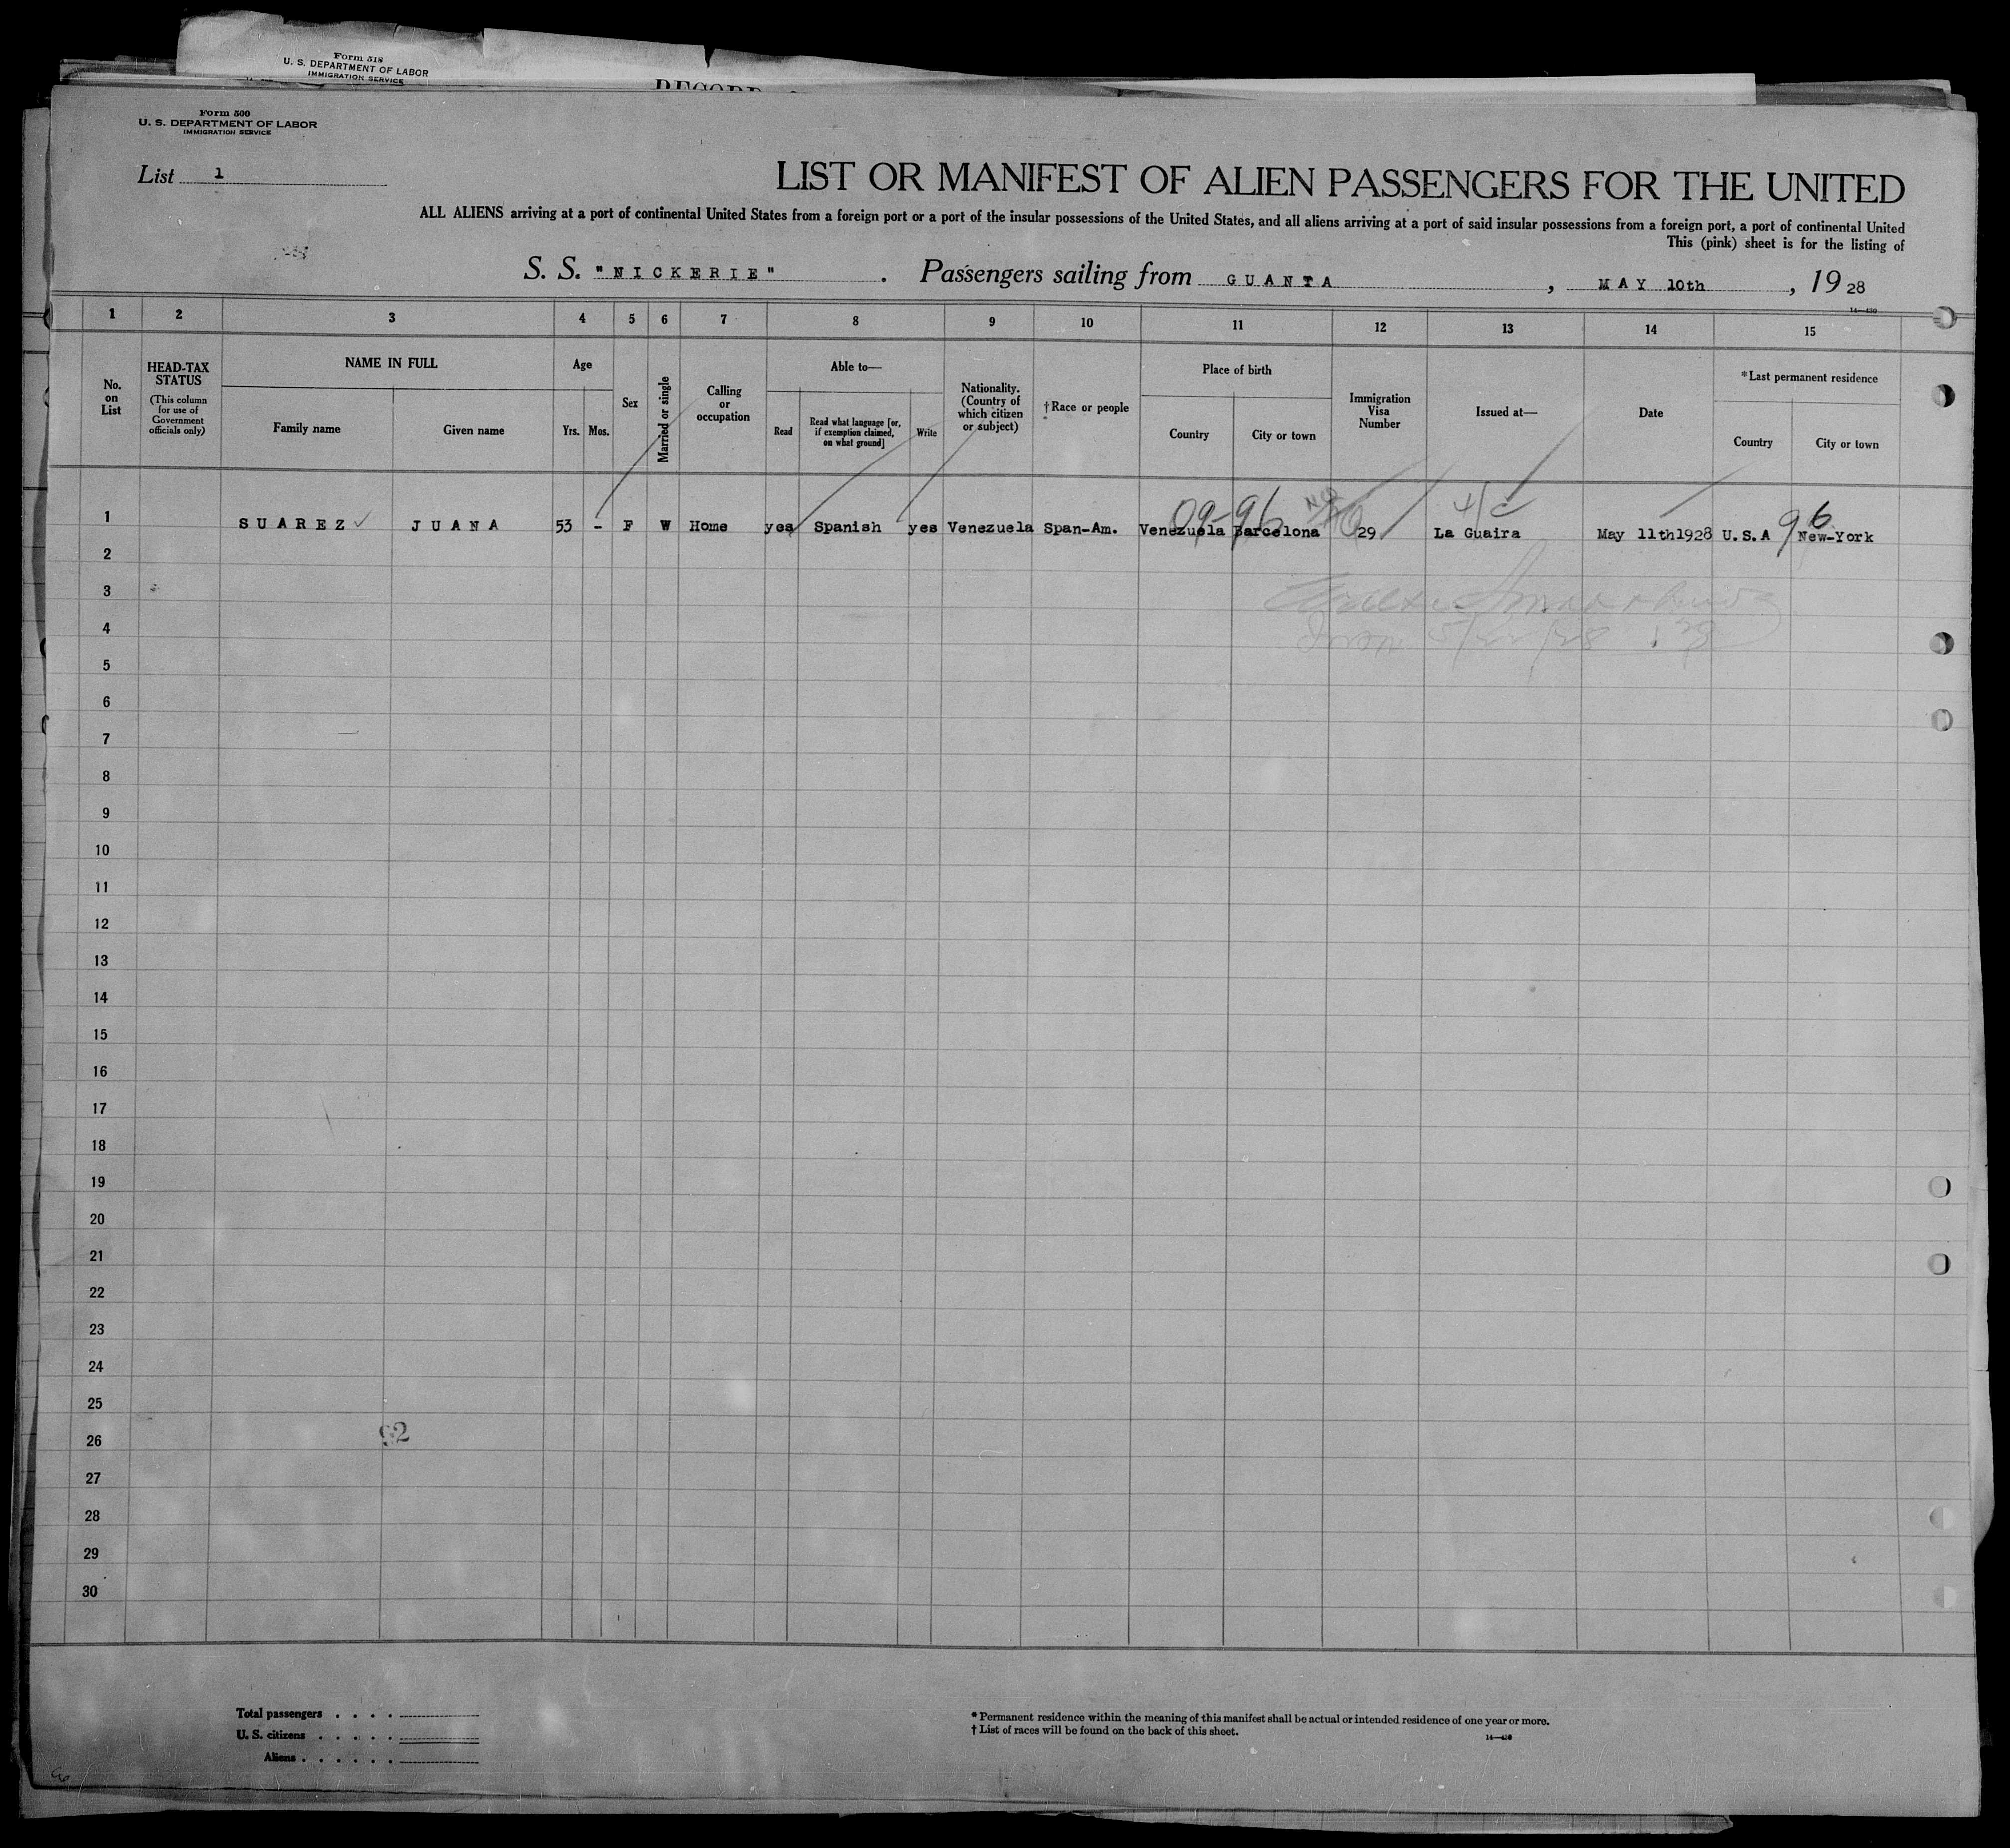 Form 518
U. S. DEPARTMENT OF LABOR
IMMIGRATION SERVICE
Form 500
U. S. DEPARTMENT OF LABOR
IMMIGRATION SERVICE
List 1
LIST OR MANIFEST OF ALIEN PASSENGERS FOR THE UNITED
ALL ALIENS arriving at a port of continental United States from a foreign port or a port of the insular possessions of the United States, and all aliens arriving at a port of said insular possessions from a foreign port, a port of continental United
This (pink) sheet is for the listing of
S. S. "NICKERIE" . Passengers sailing from GUANTA , MAY 10th , 19 28
14—430
1 2 3 4 5 6 7 8 9 10 11 12 13 14 15
No. on List
HEAD-TAX STATUS
(This column for use of Government officials only)
NAME IN FULL
Family name
Given name
Age
Yrs. Mos.
Sex
Married or single
Calling or occupation
Able to—
Read
Read what language [or, if exemption claimed, on what ground]
Write
Nationality. (Country of which citizen or subject)
†Race or people
Place of birth
Country
City or town
Immigration Visa Number
Issued at—
Date
*Last permanent residence
Country
City or town
09-96
4/C
96
1 SUAREZ ✓ JUANA 53 - F W Home yes Spanish yes Venezuela Span-Am. Venezuela Barcelona 29 La Guaira May 11th1928 U.S.A New-York
2
3
4 5/22/28
5
6
7
8
9
10
11
12
13
14
15
16
17
18
19
20
21
22
23
24
25
26
27
28
29
30
Total passengers . . . .
U. S. citizens . . . . .
Aliens . . . . . .
* Permanent residence within the meaning of this manifest shall be actual or intended residence of one year or more.
† List of races will be found on the back of this sheet.
14—430